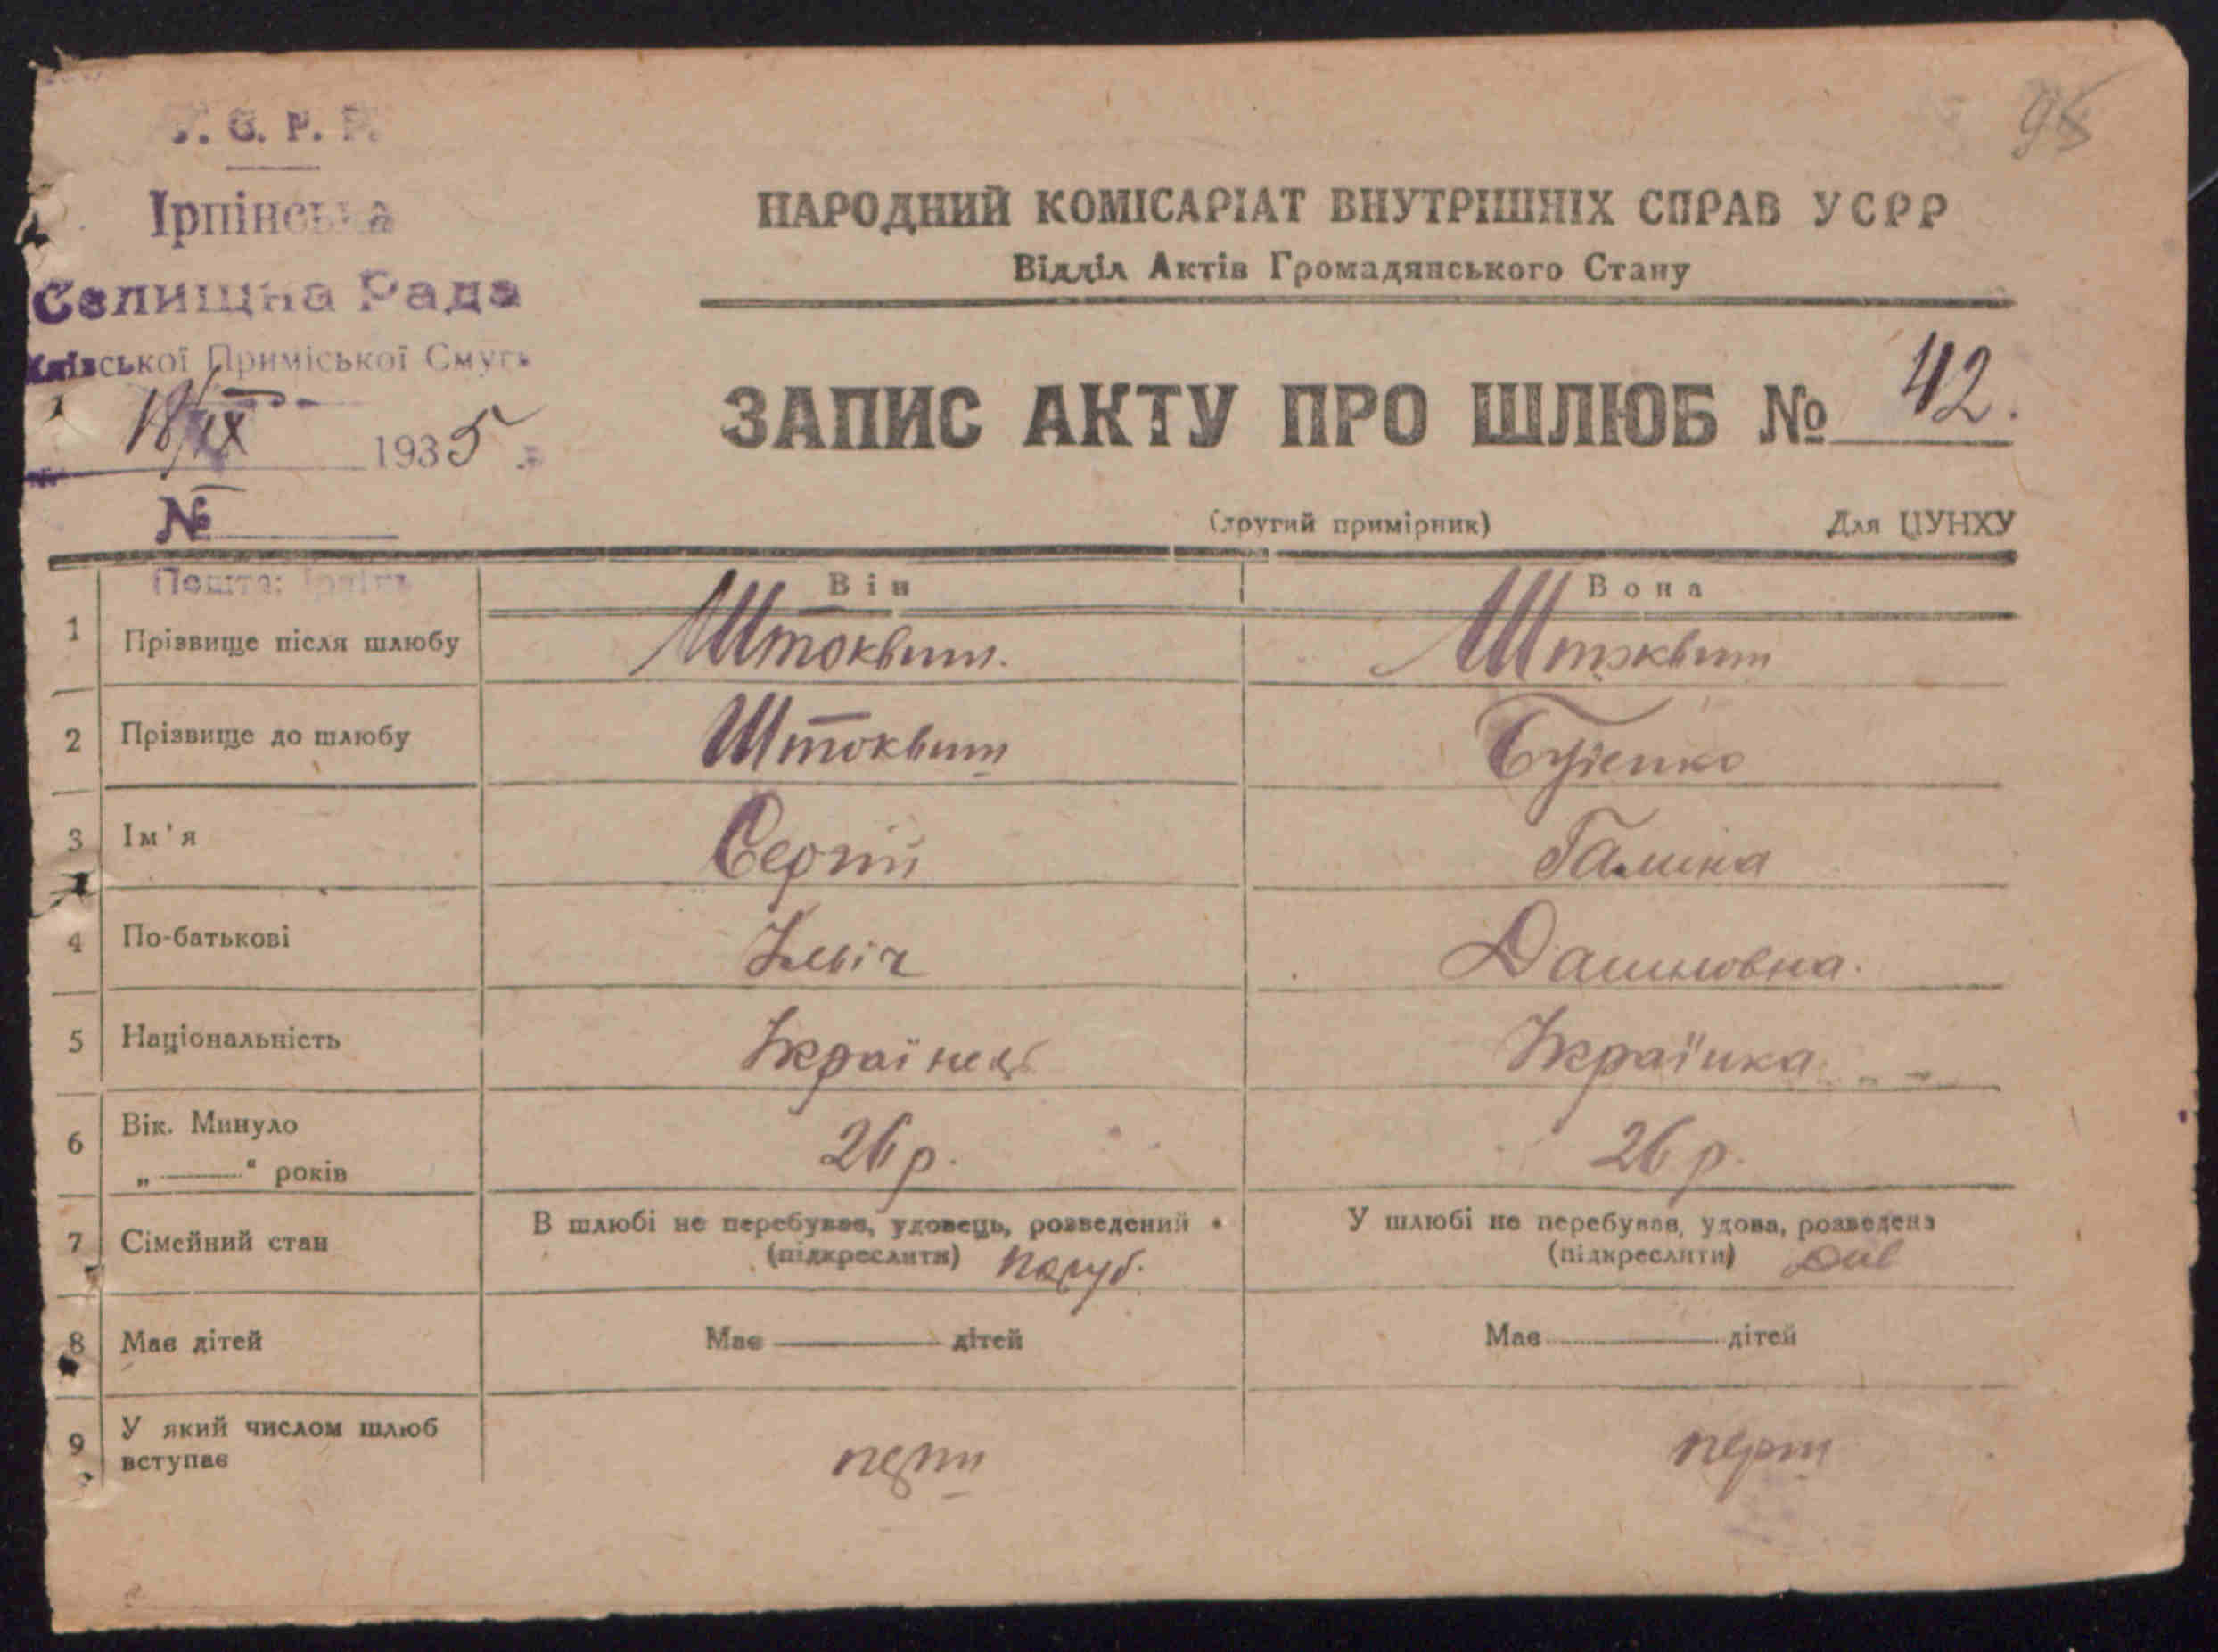 У. С. Р. Р.
Ірпінська
Селищна Рада
Київської Приміської Смуги
18/IX 1935
№
Пошта: Ірпінь
95
НАРОДНИЙ КОМІСАРІАТ ВНУТРІШНІХ СПРАВ УСРР
Відділ Актів Громадянського Стану
ЗАПИС АКТУ ПРО ШЛЮБ № 42.
(другий примірник) Для ЦУНХУ
Він Вона
1 Прізвище після шлюбу Штоквиш. Штоквиш
2 Прізвище до шлюбу Штоквиш
3 Ім'я Сергій Галина
4 По-батькові Ільіч Даниловна.
5 Національність Українець Українка
6 Вік. Минуло
„——" років 26 р. 26 р.
7 Сімейний стан В шлюбі не перебував, удовець, розведений У шлюбі не перебувала, удова, розведена
(підкреслити) паруб. (підкреслити) Дів
8 Має дітей Має —— дітей Має —— дітей
9 У який числом шлюб
вступає перш перш